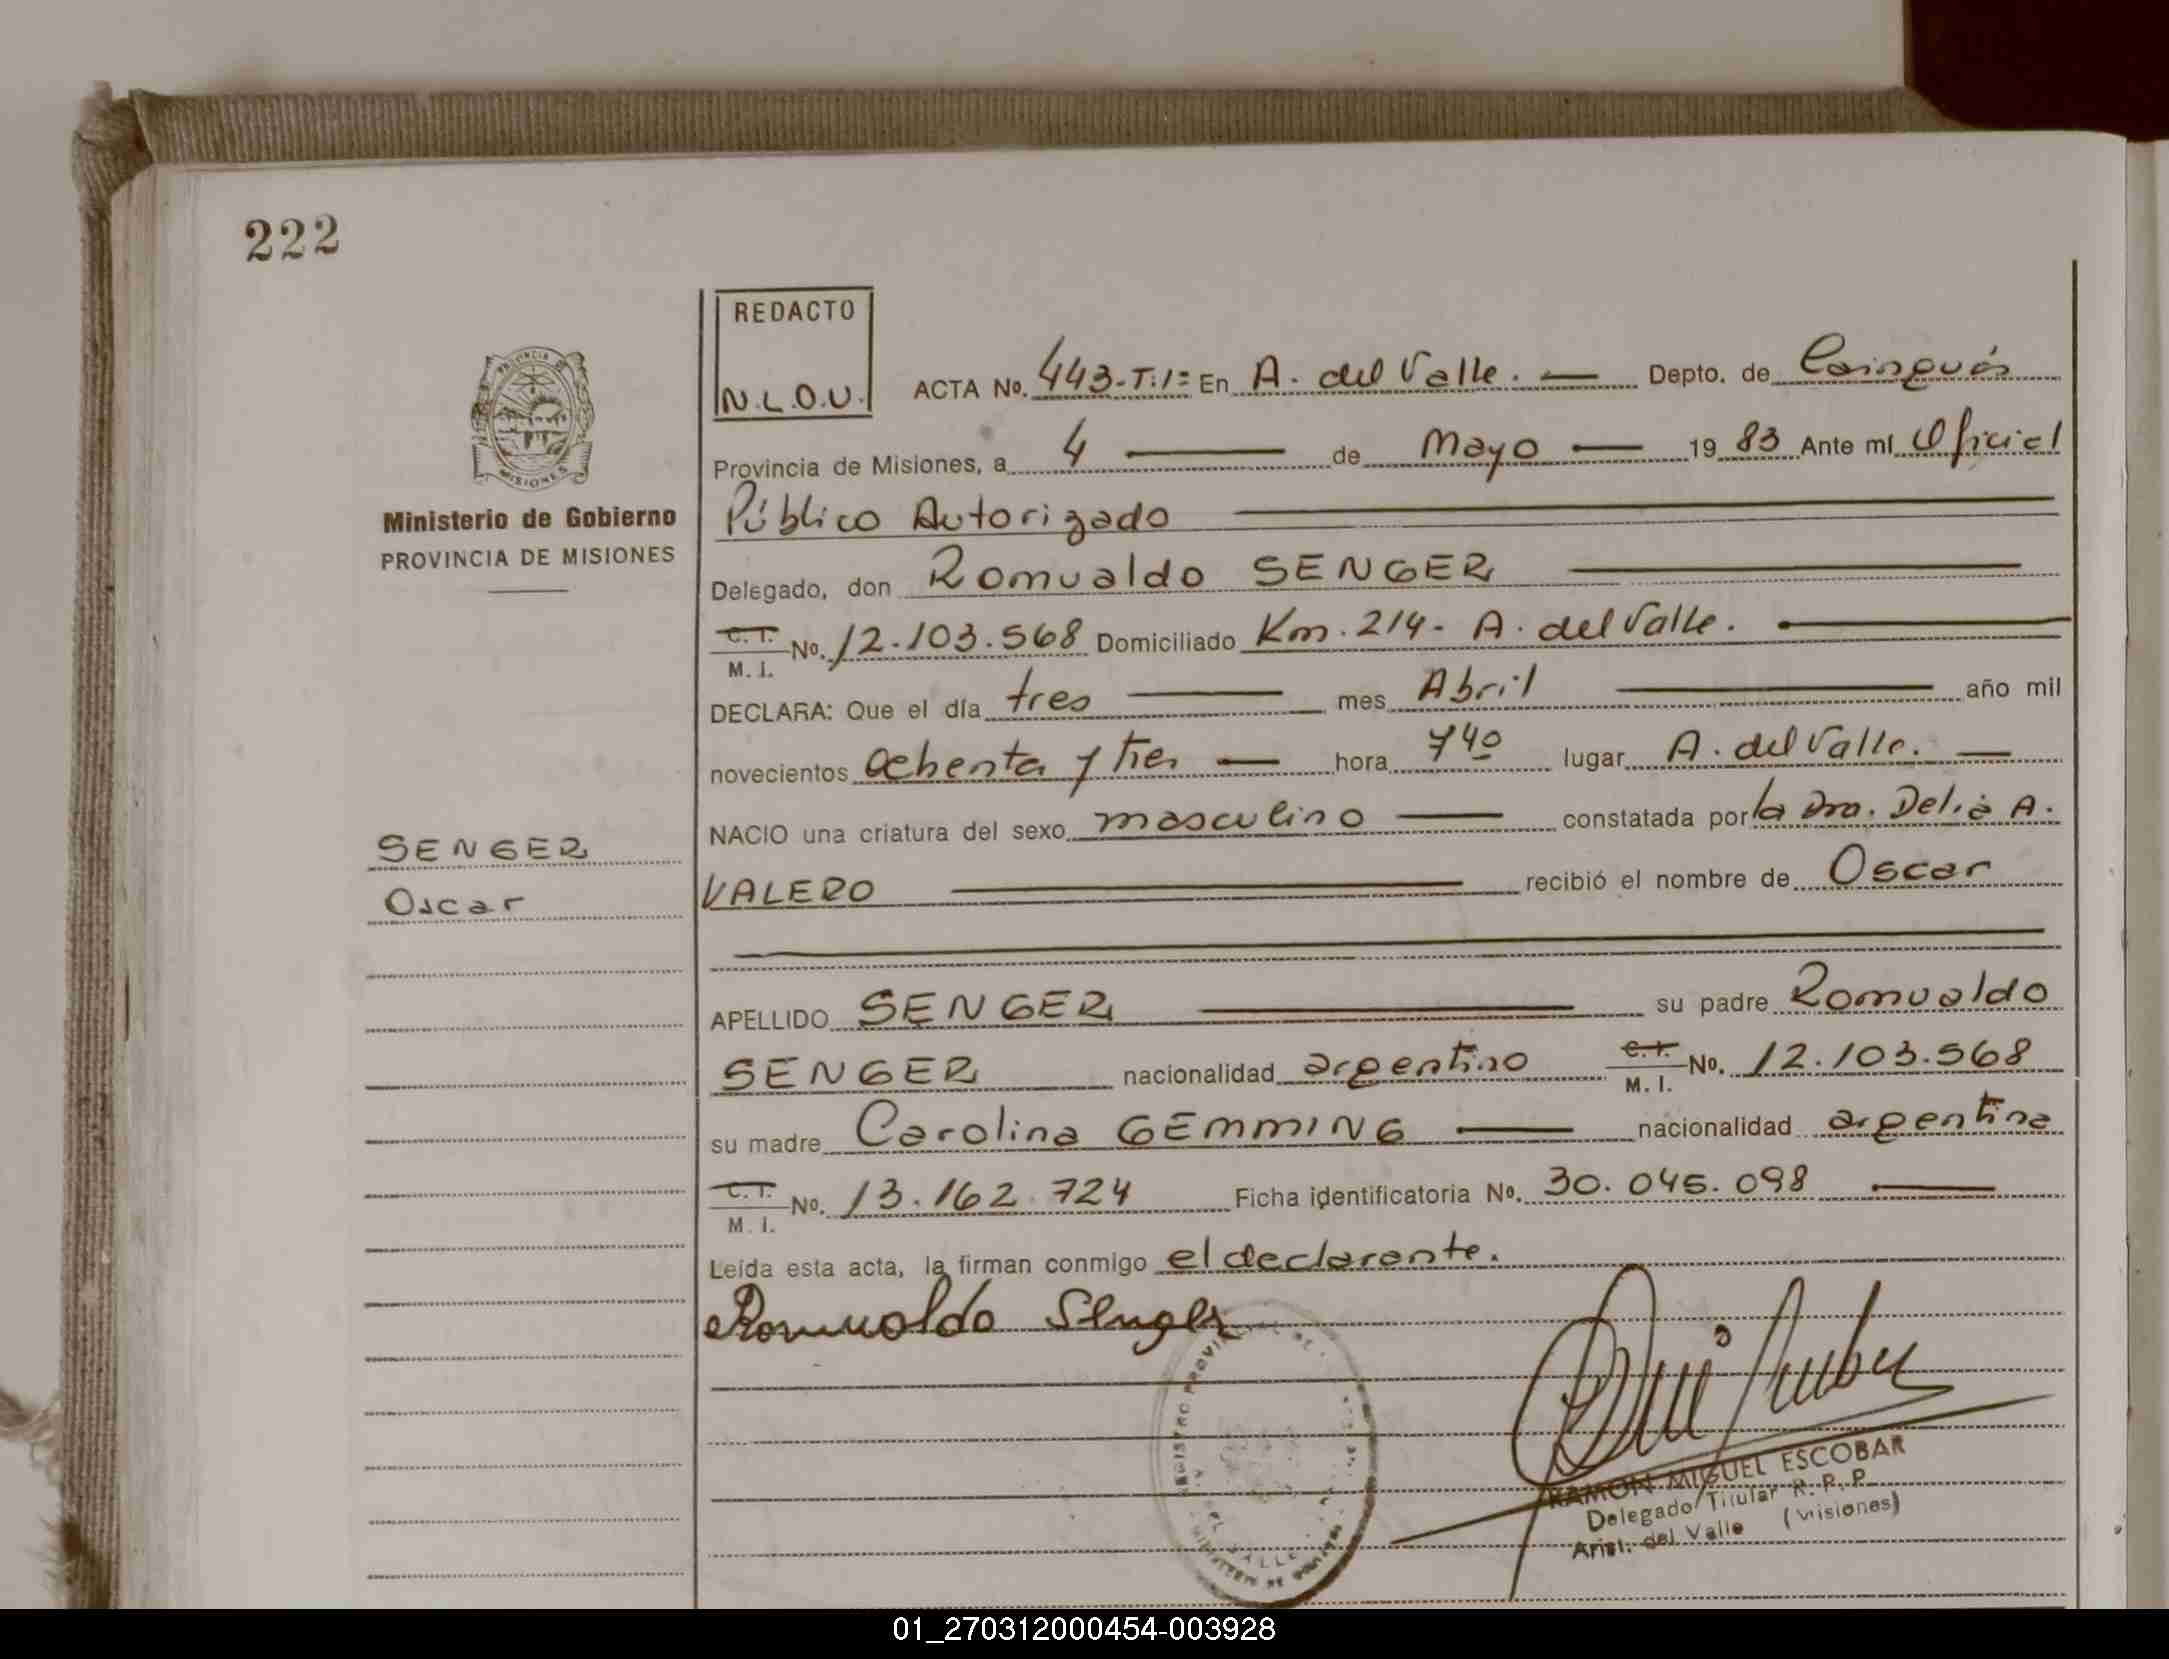 222
REDACTO
N.L.O.U.
PROVINCIA DE
MISIONES
Ministerio de Gobierno
PROVINCIA DE MISIONES
ACTA No. 443-T:1º En A. del Valle. Depto. de Cainguás
Provincia de Misiones, a 4 de Mayo 19 83 Ante mí Oficial
Público Autorizado
Delegado, don Romualdo SENGER
C. I. M. I. No. 12.103.568 Domiciliado Km. 214- A. del Valle.
DECLARA: Que el día tres mes Abril año mil
novecientos ochenta y tres hora 7 40 lugar A. del Valle.
NACIO una criatura del sexo masculino constatada por la Dra. Delia A.
VALERO recibió el nombre de Oscar
SENGER
Oscar
APELLIDO SENGER su padre Romualdo
SENGER nacionalidad argentino C. I. M. I. No. 12.103.568
su madre Carolina GEMMING nacionalidad argentina
C. I. M. I. No. 13.162.724 Ficha identificatoria No. 30.045.098
Leída esta acta, la firman conmigo el declarante.
Romualdo Senger
REGISTRO PROVINCIAL DE
DEL VALLE
RAMON MIGUEL ESCOBAR
Delegado Titular R. P. P.
Arist. del Valle (Misiones)
01_270312000454-003928